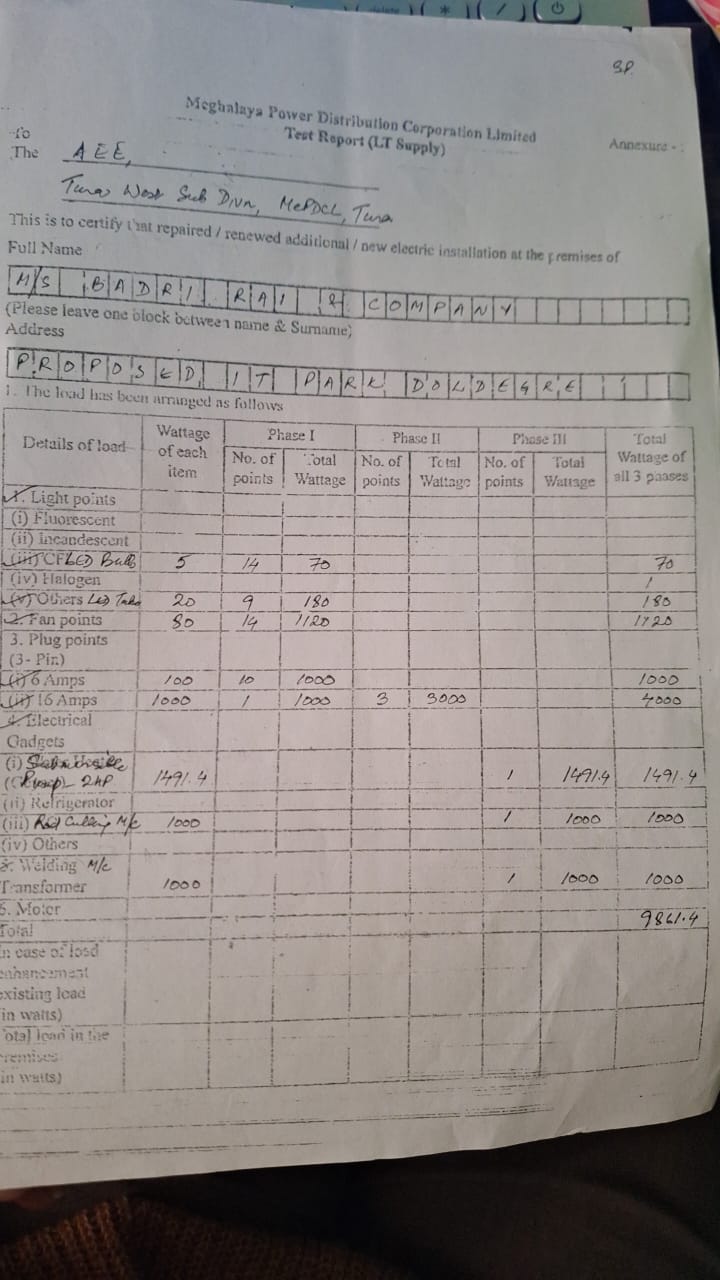 delete * /
3P.
Meghalaya Power Distribution Corporation Limited
Test Report (LT Supply)
Annexure -
To
The AEE,
Tura West Sub Divn, MePDCL, Tura
This is to certify that repaired / renewed additional / new electric installation at the premises of
Full Name
M/S BADRI RAI & COMPANY
(Please leave one block between name & Surname)
Address
PROPOSED IT PARK DOLDEGRE
1. The load has been arranged as follows
Details of load Wattage of each item Phase I Phase II Phase III Total Wattage of all 3 phases
No. of points Total Wattage No. of points Total Wattage No. of points Total Wattage
1. Light points
(i) Fluorescent
(ii) Incandescent
(iii) CFLED Bulb 5 14 70 70
(iv) Halogen /
(v) Others LED Tube 20 9 180 180
2. Fan points 80 14 1120 1120
3. Plug points
(3- Pin)
(i) 6 Amps 100 10 1000 1000
(ii) 16 Amps 1000 1 1000 3 3000 4000
4. Electrical
Gadgets
(i) Submersible
Pump 2HP 1491.4 1 1491.4 1491.4
(ii) Refrigerator
(iii) Rod Cutting M/c 1000 1 1000 1000
(iv) Others
Welding M/c
Transformer 1000 1 1000 1000
5. Motor
Total 9861.4
in case of load
enhancement
existing load
in watts)
Total load in the
premises
in watts)